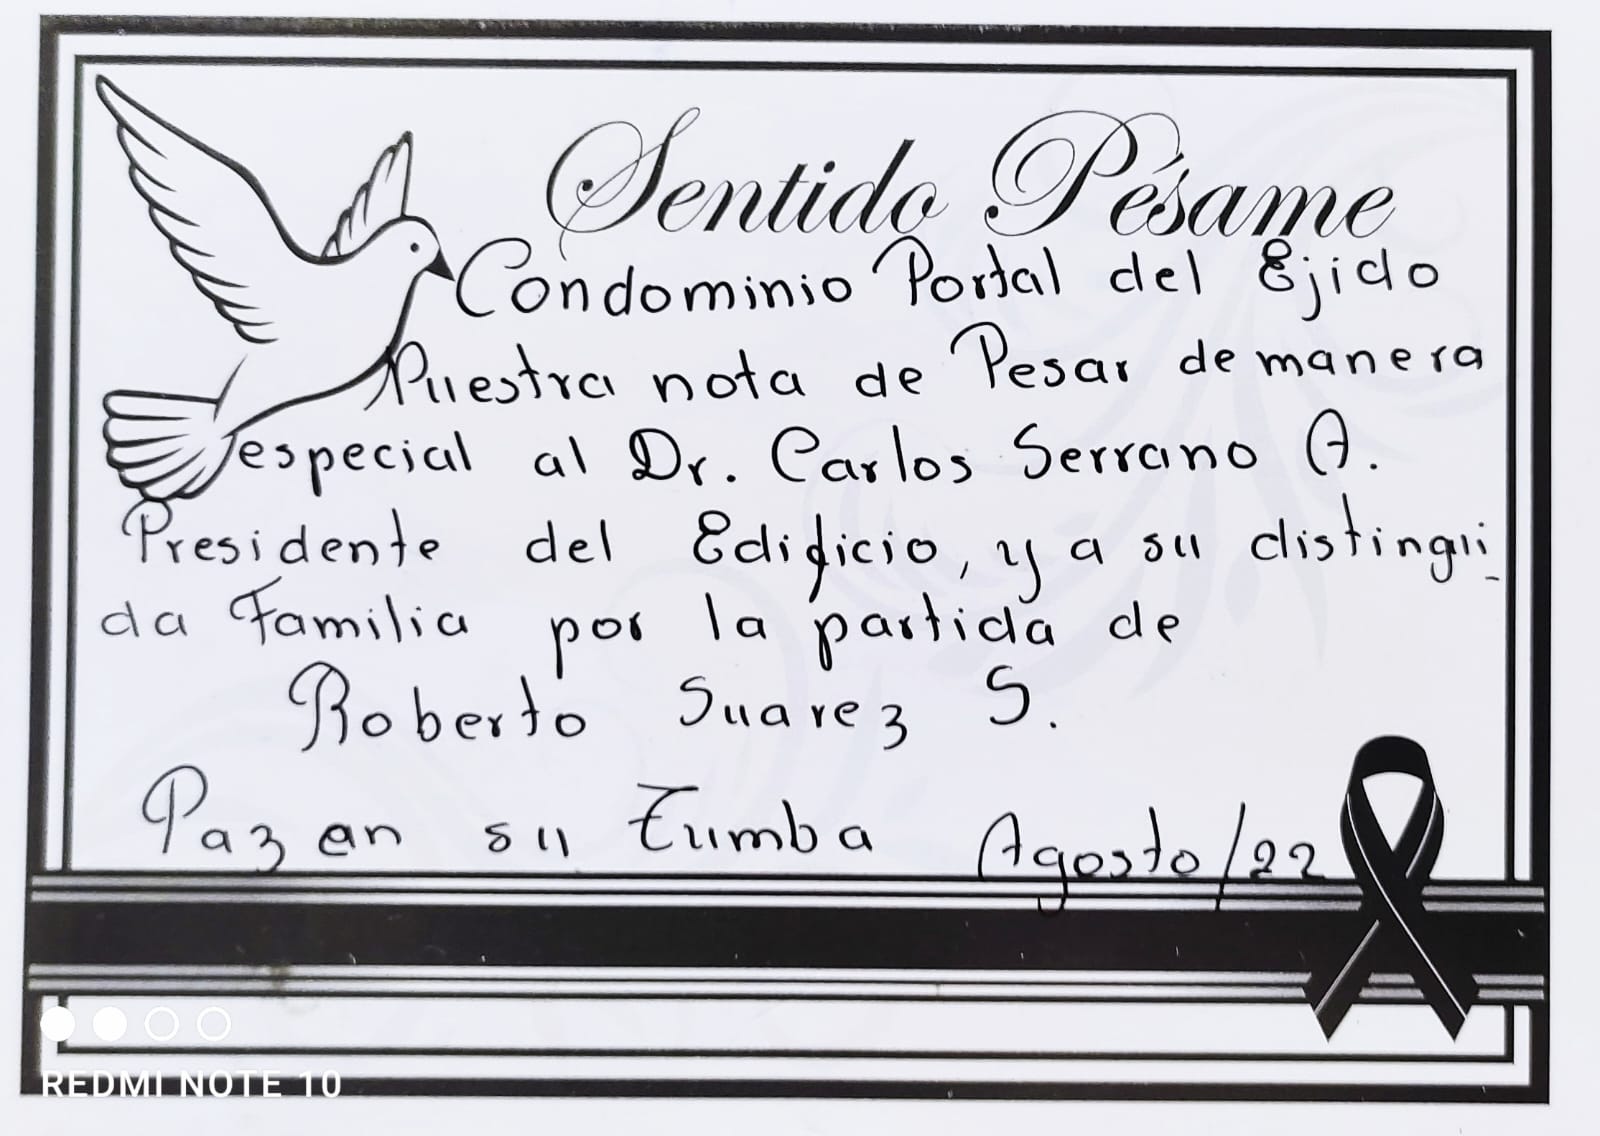 Sentido Pésame
Condominio Portal del Ejido
Nuestra nota de Pesar de manera
especial al Dr. Carlos Serrano A.
Presidente del Edificio, y a su distingui_
da Familia por la partida de
Roberto Suarez S.
Paz en su Tumba Agosto/22
REDMI NOTE 10